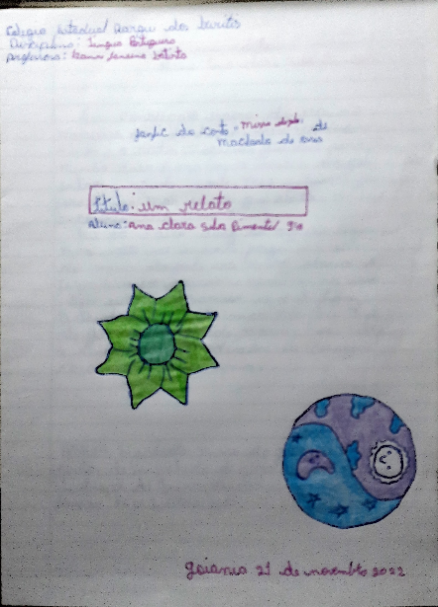 Colegio Estadual Parque dos buritis
Disciplina: Lingua Portuguesa
Professora:
fanfic do conto "missa do galo" de
Machado de Assis
titulo: um relato
Aluno: Ana clara silva Pimentel 9º
goiania 21 de novembro 2022